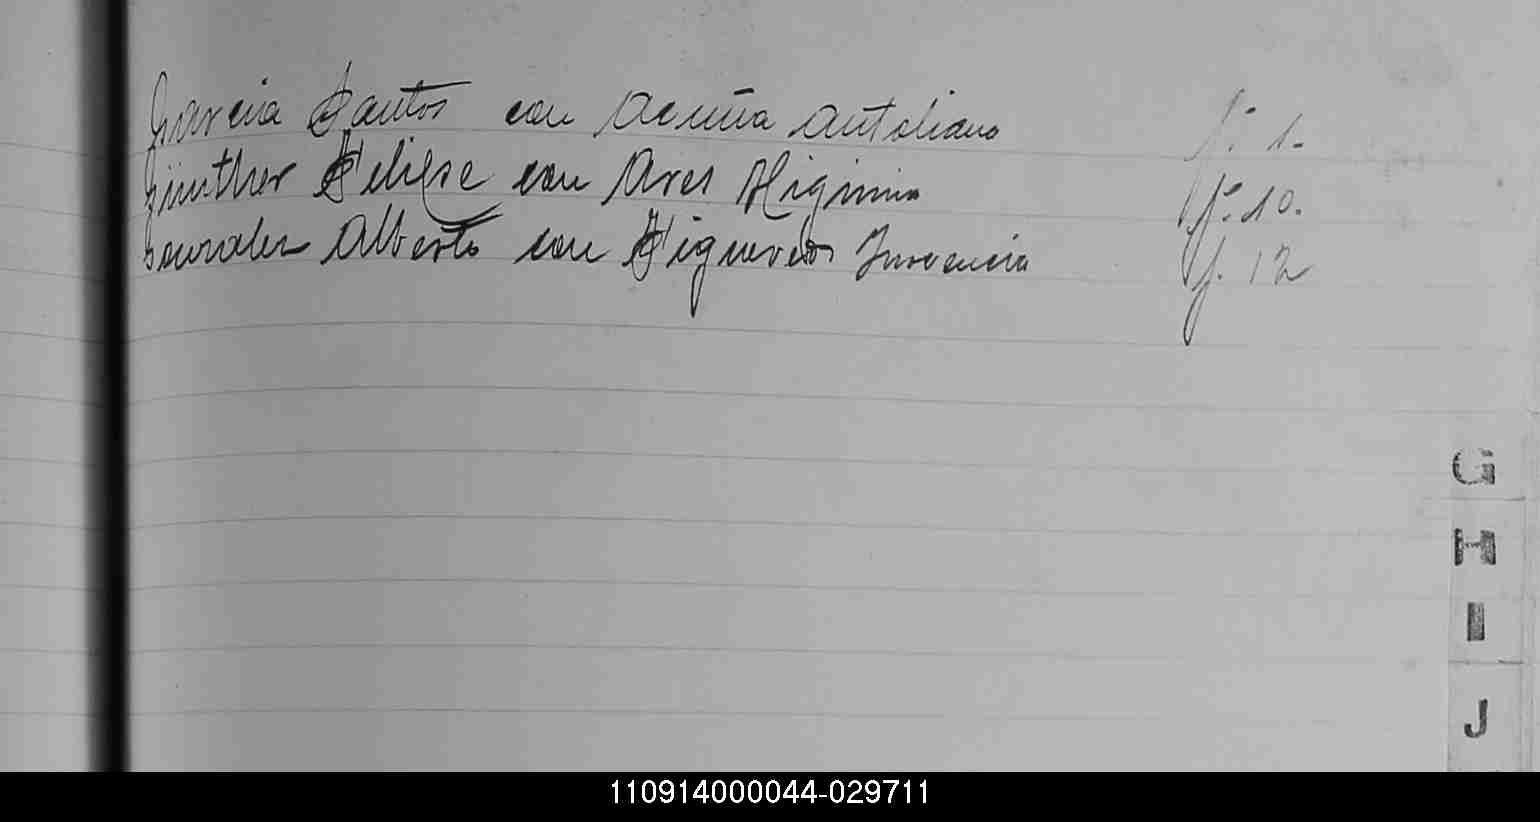 Garcia Santos con Acuña Antoliana f. 1.
Günther Felipe con Ares Higinia f. 10.
Gonzalez Alberto con Figueredo f. 12
G
H
I
J
110914000044-029711